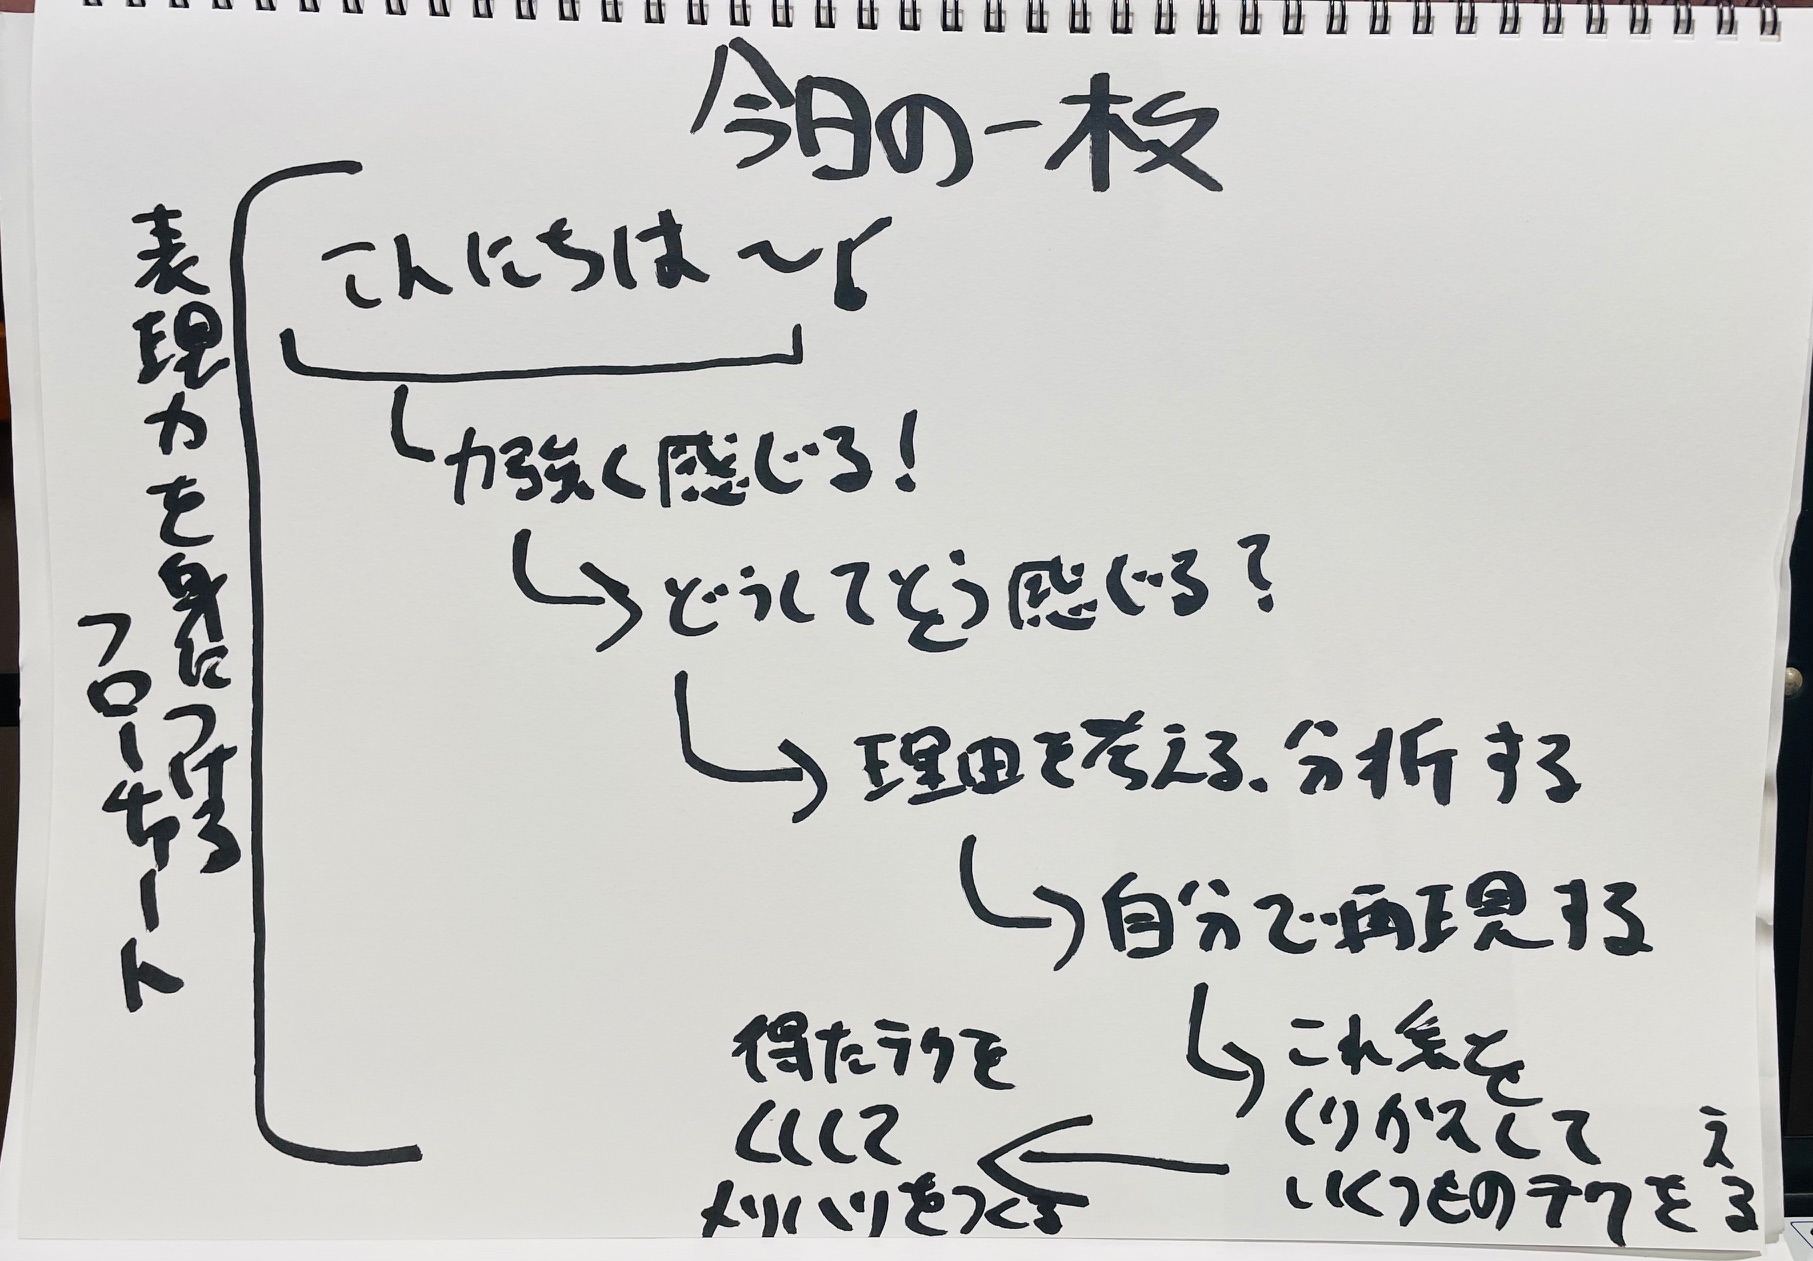 今日の一枚
表現力を身につける
フローチャート
こんにちは〜♪
力強く感じる!
どうしてそう感じる?
理由を考える、分析する
自分で再現する
これ
くりかえして
いくつものテクをえる
得たテクを
くしして
メリハリをつくる